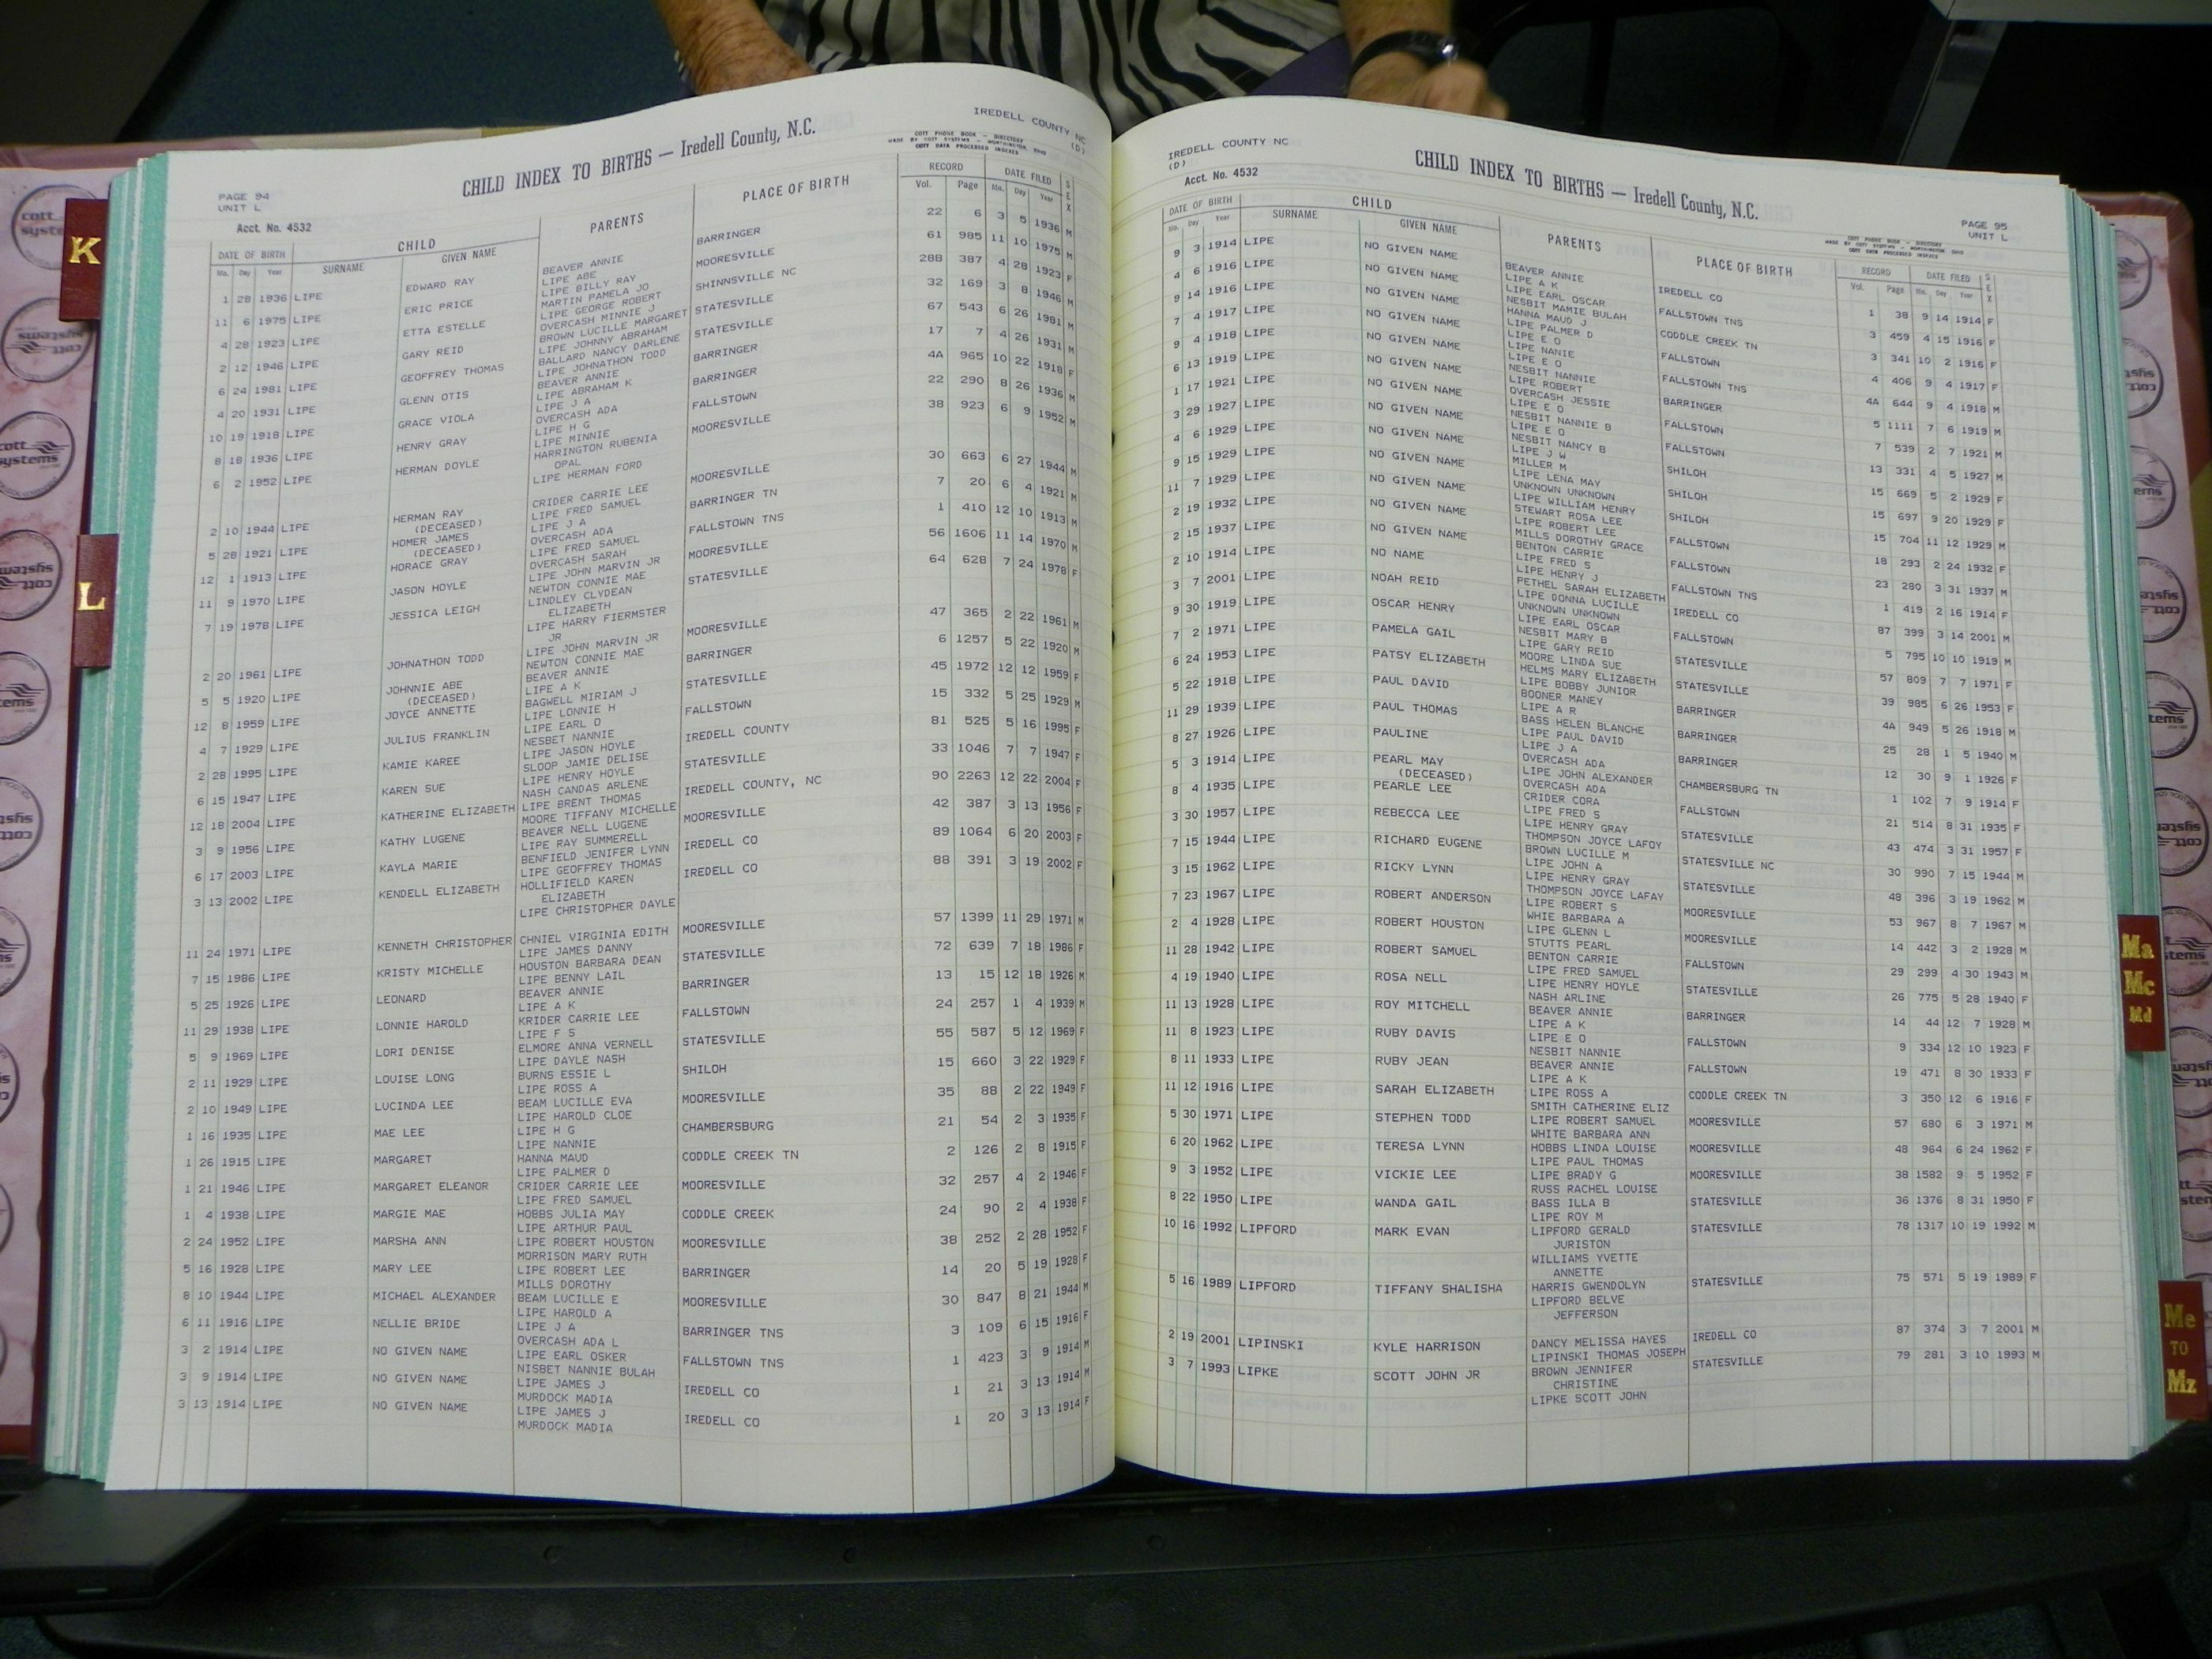 IREDELL COUNTY NC
(D)
CHILD INDEX TO BIRTHS — Iredell County, N.C.
COTT PHONE BOOK — DIRECTORY
MADE BY COTT SYSTEMS — WORTHINGTON, OHIO
COTT DATA PROCESSED INDEXES
PAGE 94
UNIT L
Acct. No. 4532
DATE OF BIRTH CHILD PARENTS PLACE OF BIRTH RECORD DATE FILED SEX
Mo. Day Year SURNAME GIVEN NAME Vol. Page Mo. Day Year
1 28 1936 LIPE EDWARD RAY BEAVER ANNIE BARRINGER 22 6 3 5 1936 M
LIPE ABE
11 6 1975 LIPE ERIC PRICE LIPE BILLY RAY MOORESVILLE 61 985 11 10 1975 M
MARTIN PAMELA JO
4 28 1923 LIPE ETTA ESTELLE LIPE GEORGE ROBERT SHINNSVILLE NC 28B 387 4 28 1923 F
OVERCASH MINNIE J
2 12 1946 LIPE GARY REID BROWN LUCILLE MARGARET STATESVILLE 32 169 3 8 1946 M
LIPE JOHNNY ABRAHAM
6 24 1981 LIPE GEOFFREY THOMAS BALLARD NANCY DARLENE STATESVILLE 67 543 6 26 1981 M
LIPE JOHNATHON TODD
4 20 1931 LIPE GLENN OTIS BEAVER ANNIE BARRINGER 17 7 4 26 1931 M
LIPE ABRAHAM K
10 19 1918 LIPE GRACE VIOLA LIPE J A BARRINGER 4A 965 10 22 1918 F
OVERCASH ADA
8 18 1936 LIPE HENRY GRAY LIPE H G FALLSTOWN 22 290 8 26 1936 M
LIPE MINNIE
6 2 1952 LIPE HERMAN DOYLE HARRINGTON RUBENIA MOORESVILLE 38 923 6 9 1952 M
OPAL
LIPE HERMAN FORD
2 10 1944 LIPE HERMAN RAY CRIDER CARRIE LEE MOORESVILLE 30 663 6 27 1944 M
(DECEASED) LIPE FRED SAMUEL
5 28 1921 LIPE HOMER JAMES LIPE J A BARRINGER TN 7 20 6 4 1921 M
(DECEASED) OVERCASH ADA
12 1 1913 LIPE HORACE GRAY LIPE FRED SAMUEL FALLSTOWN TNS 1 410 12 10 1913 M
OVERCASH SARAH
11 9 1970 LIPE JASON HOYLE LIPE JOHN MARVIN JR MOORESVILLE 56 1606 11 14 1970 M
NEWTON CONNIE MAE
7 19 1978 LIPE JESSICA LEIGH LINDLEY CLYDEAN STATESVILLE 64 628 7 24 1978 F
ELIZABETH
LIPE HARRY FIERMSTER
JR
2 20 1961 LIPE JOHNATHON TODD LIPE JOHN MARVIN JR MOORESVILLE 47 365 2 22 1961 M
NEWTON CONNIE MAE
5 5 1920 LIPE JOHNNIE ABE BEAVER ANNIE BARRINGER 6 1257 5 22 1920 M
(DECEASED) LIPE A K
12 8 1959 LIPE JOYCE ANNETTE BAGWELL MIRIAM J STATESVILLE 45 1972 12 12 1959 F
LIPE LONNIE H
4 7 1929 LIPE JULIUS FRANKLIN LIPE EARL O FALLSTOWN 15 332 5 25 1929 M
NESBET NANNIE
2 28 1995 LIPE KAMIE KAREE LIPE JASON HOYLE IREDELL COUNTY 81 525 5 16 1995 F
SLOOP JAMIE DELISE
6 15 1947 LIPE KAREN SUE LIPE HENRY HOYLE STATESVILLE 33 1046 7 7 1947 F
NASH CANDAS ARLENE
12 18 2004 LIPE KATHERINE ELIZABETH LIPE BRENT THOMAS IREDELL COUNTY, NC 90 2263 12 22 2004 F
MOORE TIFFANY MICHELLE
3 9 1956 LIPE KATHY LUGENE BEAVER NELL LUGENE MOORESVILLE 42 387 3 13 1956 F
LIPE RAY SUMMERELL
6 17 2003 LIPE KAYLA MARIE BENFIELD JENIFER LYNN IREDELL CO 89 1064 6 20 2003 F
LIPE GEOFFREY THOMAS
3 13 2002 LIPE KENDELL ELIZABETH HOLLIFIELD KAREN IREDELL CO 88 391 3 19 2002 F
ELIZABETH
LIPE CHRISTOPHER DAYLE
11 24 1971 LIPE KENNETH CHRISTOPHER CHNIEL VIRGINIA EDITH MOORESVILLE 57 1399 11 29 1971 M
LIPE JAMES DANNY
7 15 1986 LIPE KRISTY MICHELLE HOUSTON BARBARA DEAN STATESVILLE 72 639 7 18 1986 F
LIPE BENNY LAIL
5 25 1926 LIPE LEONARD BEAVER ANNIE BARRINGER 13 15 12 18 1926 M
LIPE A K
11 29 1938 LIPE LONNIE HAROLD KRIDER CARRIE LEE FALLSTOWN 24 257 1 4 1939 M
LIPE F S
5 9 1969 LIPE LORI DENISE ELMORE ANNA VERNELL STATESVILLE 55 587 5 12 1969 F
LIPE DAYLE NASH
2 11 1929 LIPE LOUISE LONG BURNS ESSIE L SHILOH 15 660 3 22 1929 F
LIPE ROSS A
2 10 1949 LIPE LUCINDA LEE BEAM LUCILLE EVA MOORESVILLE 35 88 2 22 1949 F
LIPE HAROLD CLOE
1 16 1935 LIPE MAE LEE LIPE H G CHAMBERSBURG 21 54 2 3 1935 F
LIPE NANNIE
1 26 1915 LIPE MARGARET HANNA MAUD CODDLE CREEK TN 2 126 2 8 1915 F
LIPE PALMER D
1 21 1946 LIPE MARGARET ELEANOR CRIDER CARRIE LEE MOORESVILLE 32 257 4 2 1946 F
LIPE FRED SAMUEL
1 4 1938 LIPE MARGIE MAE HOBBS JULIA MAY CODDLE CREEK 24 90 2 4 1938 F
LIPE ARTHUR PAUL
2 24 1952 LIPE MARSHA ANN LIPE ROBERT HOUSTON MOORESVILLE 38 252 2 28 1952 F
MORRISON MARY RUTH
5 16 1928 LIPE MARY LEE LIPE ROBERT LEE BARRINGER 14 20 5 19 1928 F
MILLS DOROTHY
8 10 1944 LIPE MICHAEL ALEXANDER BEAM LUCILLE E MOORESVILLE 30 847 8 21 1944 M
LIPE HAROLD A
6 11 1916 LIPE NELLIE BRIDE LIPE J A BARRINGER TNS 3 109 6 15 1916 F
OVERCASH ADA L
3 2 1914 LIPE NO GIVEN NAME LIPE EARL OSKER FALLSTOWN TNS 1 423 3 9 1914 M
NISBET NANNIE BULAH
3 9 1914 LIPE NO GIVEN NAME LIPE JAMES J IREDELL CO 1 21 3 13 1914 M
MURDOCK MADIA
3 13 1914 LIPE NO GIVEN NAME LIPE JAMES J IREDELL CO 1 20 3 13 1914 F
MURDOCK MADIA
IREDELL COUNTY NC
(D)
Acct. No. 4532
CHILD INDEX TO BIRTHS — Iredell County, N.C.
COTT PHONE BOOK — DIRECTORY
MADE BY COTT SYSTEMS — WORTHINGTON, OHIO
COTT DATA PROCESSED INDEXES
PAGE 95
UNIT L
DATE OF BIRTH CHILD PARENTS PLACE OF BIRTH RECORD DATE FILED SEX
Mo. Day Year SURNAME GIVEN NAME Vol. Page Mo. Day Year
9 3 1914 LIPE NO GIVEN NAME BEAVER ANNIE IREDELL CO 1 38 9 14 1914 F
LIPE A K
4 6 1916 LIPE NO GIVEN NAME LIPE EARL OSCAR FALLSTOWN TNS 3 459 4 15 1916 F
NESBIT MAMIE BULAH
9 14 1916 LIPE NO GIVEN NAME HANNA MAUD J CODDLE CREEK TN 3 341 10 2 1916 F
LIPE PALMER D
7 4 1917 LIPE NO GIVEN NAME LIPE E O FALLSTOWN 4 406 9 4 1917 F
LIPE NANIE
9 4 1918 LIPE NO GIVEN NAME LIPE E O FALLSTOWN TNS 4A 644 9 4 1918 M
NESBIT NANNIE
6 13 1919 LIPE NO GIVEN NAME LIPE ROBERT BARRINGER 5 1111 7 6 1919 M
OVERCASH JESSIE
1 17 1921 LIPE NO GIVEN NAME LIPE E O FALLSTOWN 7 539 2 7 1921 M
NESBIT NANNIE B
3 29 1927 LIPE NO GIVEN NAME LIPE E O FALLSTOWN 13 331 4 5 1927 M
NESBIT NANCY B
4 6 1929 LIPE NO GIVEN NAME LIPE J W SHILOH 15 669 5 2 1929 F
MILLER M
9 15 1929 LIPE NO GIVEN NAME LIPE LENA MAY SHILOH 15 697 9 20 1929 F
UNKNOWN UNKNOWN
11 7 1929 LIPE NO GIVEN NAME LIPE WILLIAM HENRY SHILOH 15 704 11 12 1929 M
STEWART ROSA LEE
2 19 1932 LIPE NO GIVEN NAME LIPE ROBERT LEE FALLSTOWN 18 293 2 24 1932 F
MILLS DOROTHY GRACE
2 15 1937 LIPE NO GIVEN NAME BENTON CARRIE FALLSTOWN 23 280 3 31 1937 M
LIPE FRED S
2 10 1914 LIPE NO NAME LIPE HENRY J FALLSTOWN TNS 1 419 2 16 1914 F
PETHEL SARAH ELIZABETH
3 7 2001 LIPE NOAH REID LIPE DONNA LUCILLE IREDELL CO 87 399 3 14 2001 M
UNKNOWN UNKNOWN
9 30 1919 LIPE OSCAR HENRY LIPE EARL OSCAR FALLSTOWN 5 795 10 10 1919 M
NESBIT MARY B
7 2 1971 LIPE PAMELA GAIL LIPE GARY REID STATESVILLE 57 809 7 7 1971 F
MOORE LINDA SUE
6 24 1953 LIPE PATSY ELIZABETH HELMS MARY ELIZABETH STATESVILLE 39 985 6 26 1953 F
LIPE BOBBY JUNIOR
5 22 1918 LIPE PAUL DAVID BOONER MANEY BARRINGER 4A 949 5 26 1918 M
LIPE A R
11 29 1939 LIPE PAUL THOMAS BASS HELEN BLANCHE BARRINGER 25 28 1 5 1940 M
LIPE PAUL DAVID
8 27 1926 LIPE PAULINE LIPE J A BARRINGER 12 30 9 1 1926 F
OVERCASH ADA
5 3 1914 LIPE PEARL MAY LIPE JOHN ALEXANDER CHAMBERSBURG TN 1 102 7 9 1914 F
(DECEASED) OVERCASH ADA
8 4 1935 LIPE PEARLE LEE CRIDER CORA FALLSTOWN 21 514 8 31 1935 F
LIPE FRED S
3 30 1957 LIPE REBECCA LEE LIPE HENRY GRAY STATESVILLE 43 474 3 31 1957 F
THOMPSON JOYCE LAFOY
7 15 1944 LIPE RICHARD EUGENE BROWN LUCILLE M STATESVILLE NC 30 990 7 15 1944 M
LIPE JOHN A
3 15 1962 LIPE RICKY LYNN LIPE HENRY GRAY STATESVILLE 48 396 3 19 1962 M
THOMPSON JOYCE LAFAY
7 23 1967 LIPE ROBERT ANDERSON LIPE ROBERT S MOORESVILLE 53 967 8 7 1967 M
WHIE BARBARA A
2 4 1928 LIPE ROBERT HOUSTON LIPE GLENN L MOORESVILLE 14 442 3 2 1928 M
STUTTS PEARL
11 28 1942 LIPE ROBERT SAMUEL BENTON CARRIE FALLSTOWN 29 299 4 30 1943 M
LIPE FRED SAMUEL
4 19 1940 LIPE ROSA NELL LIPE HENRY HOYLE STATESVILLE 26 775 5 28 1940 F
NASH ARLINE
11 13 1928 LIPE ROY MITCHELL BEAVER ANNIE BARRINGER 14 44 12 7 1928 M
LIPE A K
11 8 1923 LIPE RUBY DAVIS LIPE E O FALLSTOWN 9 334 12 10 1923 F
NESBIT NANNIE
8 11 1933 LIPE RUBY JEAN BEAVER ANNIE FALLSTOWN 19 471 8 30 1933 F
LIPE A K
11 12 1916 LIPE SARAH ELIZABETH LIPE ROSS A CODDLE CREEK TN 3 350 12 6 1916 F
SMITH CATHERINE ELIZ
5 30 1971 LIPE STEPHEN TODD LIPE ROBERT SAMUEL MOORESVILLE 57 680 6 3 1971 M
WHITE BARBARA ANN
6 20 1962 LIPE TERESA LYNN HOBBS LINDA LOUISE MOORESVILLE 48 964 6 24 1962 F
LIPE PAUL THOMAS
9 3 1952 LIPE VICKIE LEE LIPE BRADY G MOORESVILLE 38 1582 9 5 1952 F
RUSS RACHEL LOUISE
8 22 1950 LIPE WANDA GAIL BASS ILLA B STATESVILLE 36 1376 8 31 1950 F
LIPE ROY M
10 16 1992 LIPFORD MARK EVAN LIPFORD GERALD STATESVILLE 78 1317 10 19 1992 M
JURISTON
WILLIAMS YVETTE
ANNETTE
5 16 1989 LIPFORD TIFFANY SHALISHA HARRIS GWENDOLYN STATESVILLE 75 571 5 19 1989 F
LIPFORD BELVE
JEFFERSON
2 19 2001 LIPINSKI KYLE HARRISON DANCY MELISSA HAYES IREDELL CO 87 374 3 7 2001 M
LIPINSKI THOMAS JOSEPH
3 7 1993 LIPKE SCOTT JOHN JR BROWN JENNIFER STATESVILLE 79 281 3 10 1993 M
CHRISTINE
LIPKE SCOTT JOHN
K
L
Ma
Mc
Md
Me
TO
Mz
cott systems